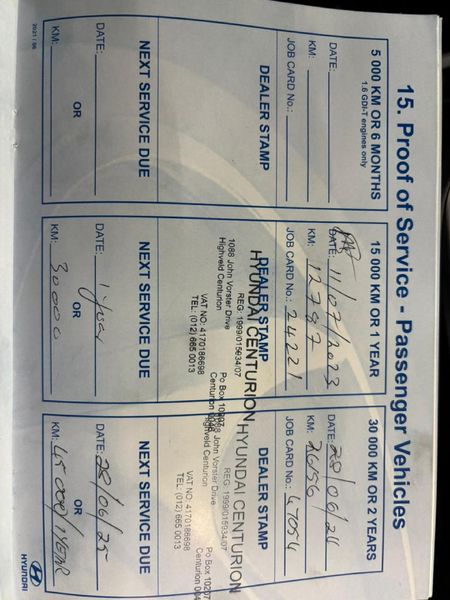 15. Proof of Service - Passenger Vehicles
5 000 KM OR 6 MONTHS
1.6 GDI-T engines only
DATE:
KM:
JOB CARD No.:
DEALER STAMP
NEXT SERVICE DUE
DATE:
OR
KM:
15 000 KM OR 1 YEAR
DATE: 11/07/2023
KM: 12797
JOB CARD No.: 34221
DEALER STAMP
HYUNDAI CENTURION
REG: 1999/015934/07
1088 John Vorster Drive
Highveld Centurion
Po Box 10207
Centurion 0046
VAT NO: 4170186698
TEL: (012) 665 0013
NEXT SERVICE DUE
DATE: 1 year
OR
KM: 30000
30 000 KM OR 2 YEARS
DATE: 28/06/24
KM: 26156
JOB CARD No.: 47054
DEALER STAMP
HYUNDAI CENTURION
REG: 1999/015934/07
1088 John Vorster Drive
Highveld Centurion
Po Box 10207
Centurion 0046
VAT NO: 4170186698
TEL: (012) 665 0013
NEXT SERVICE DUE
DATE: 28/06/25
OR
KM: 45 000/1YEAR
2021 / 06
HYUNDAI